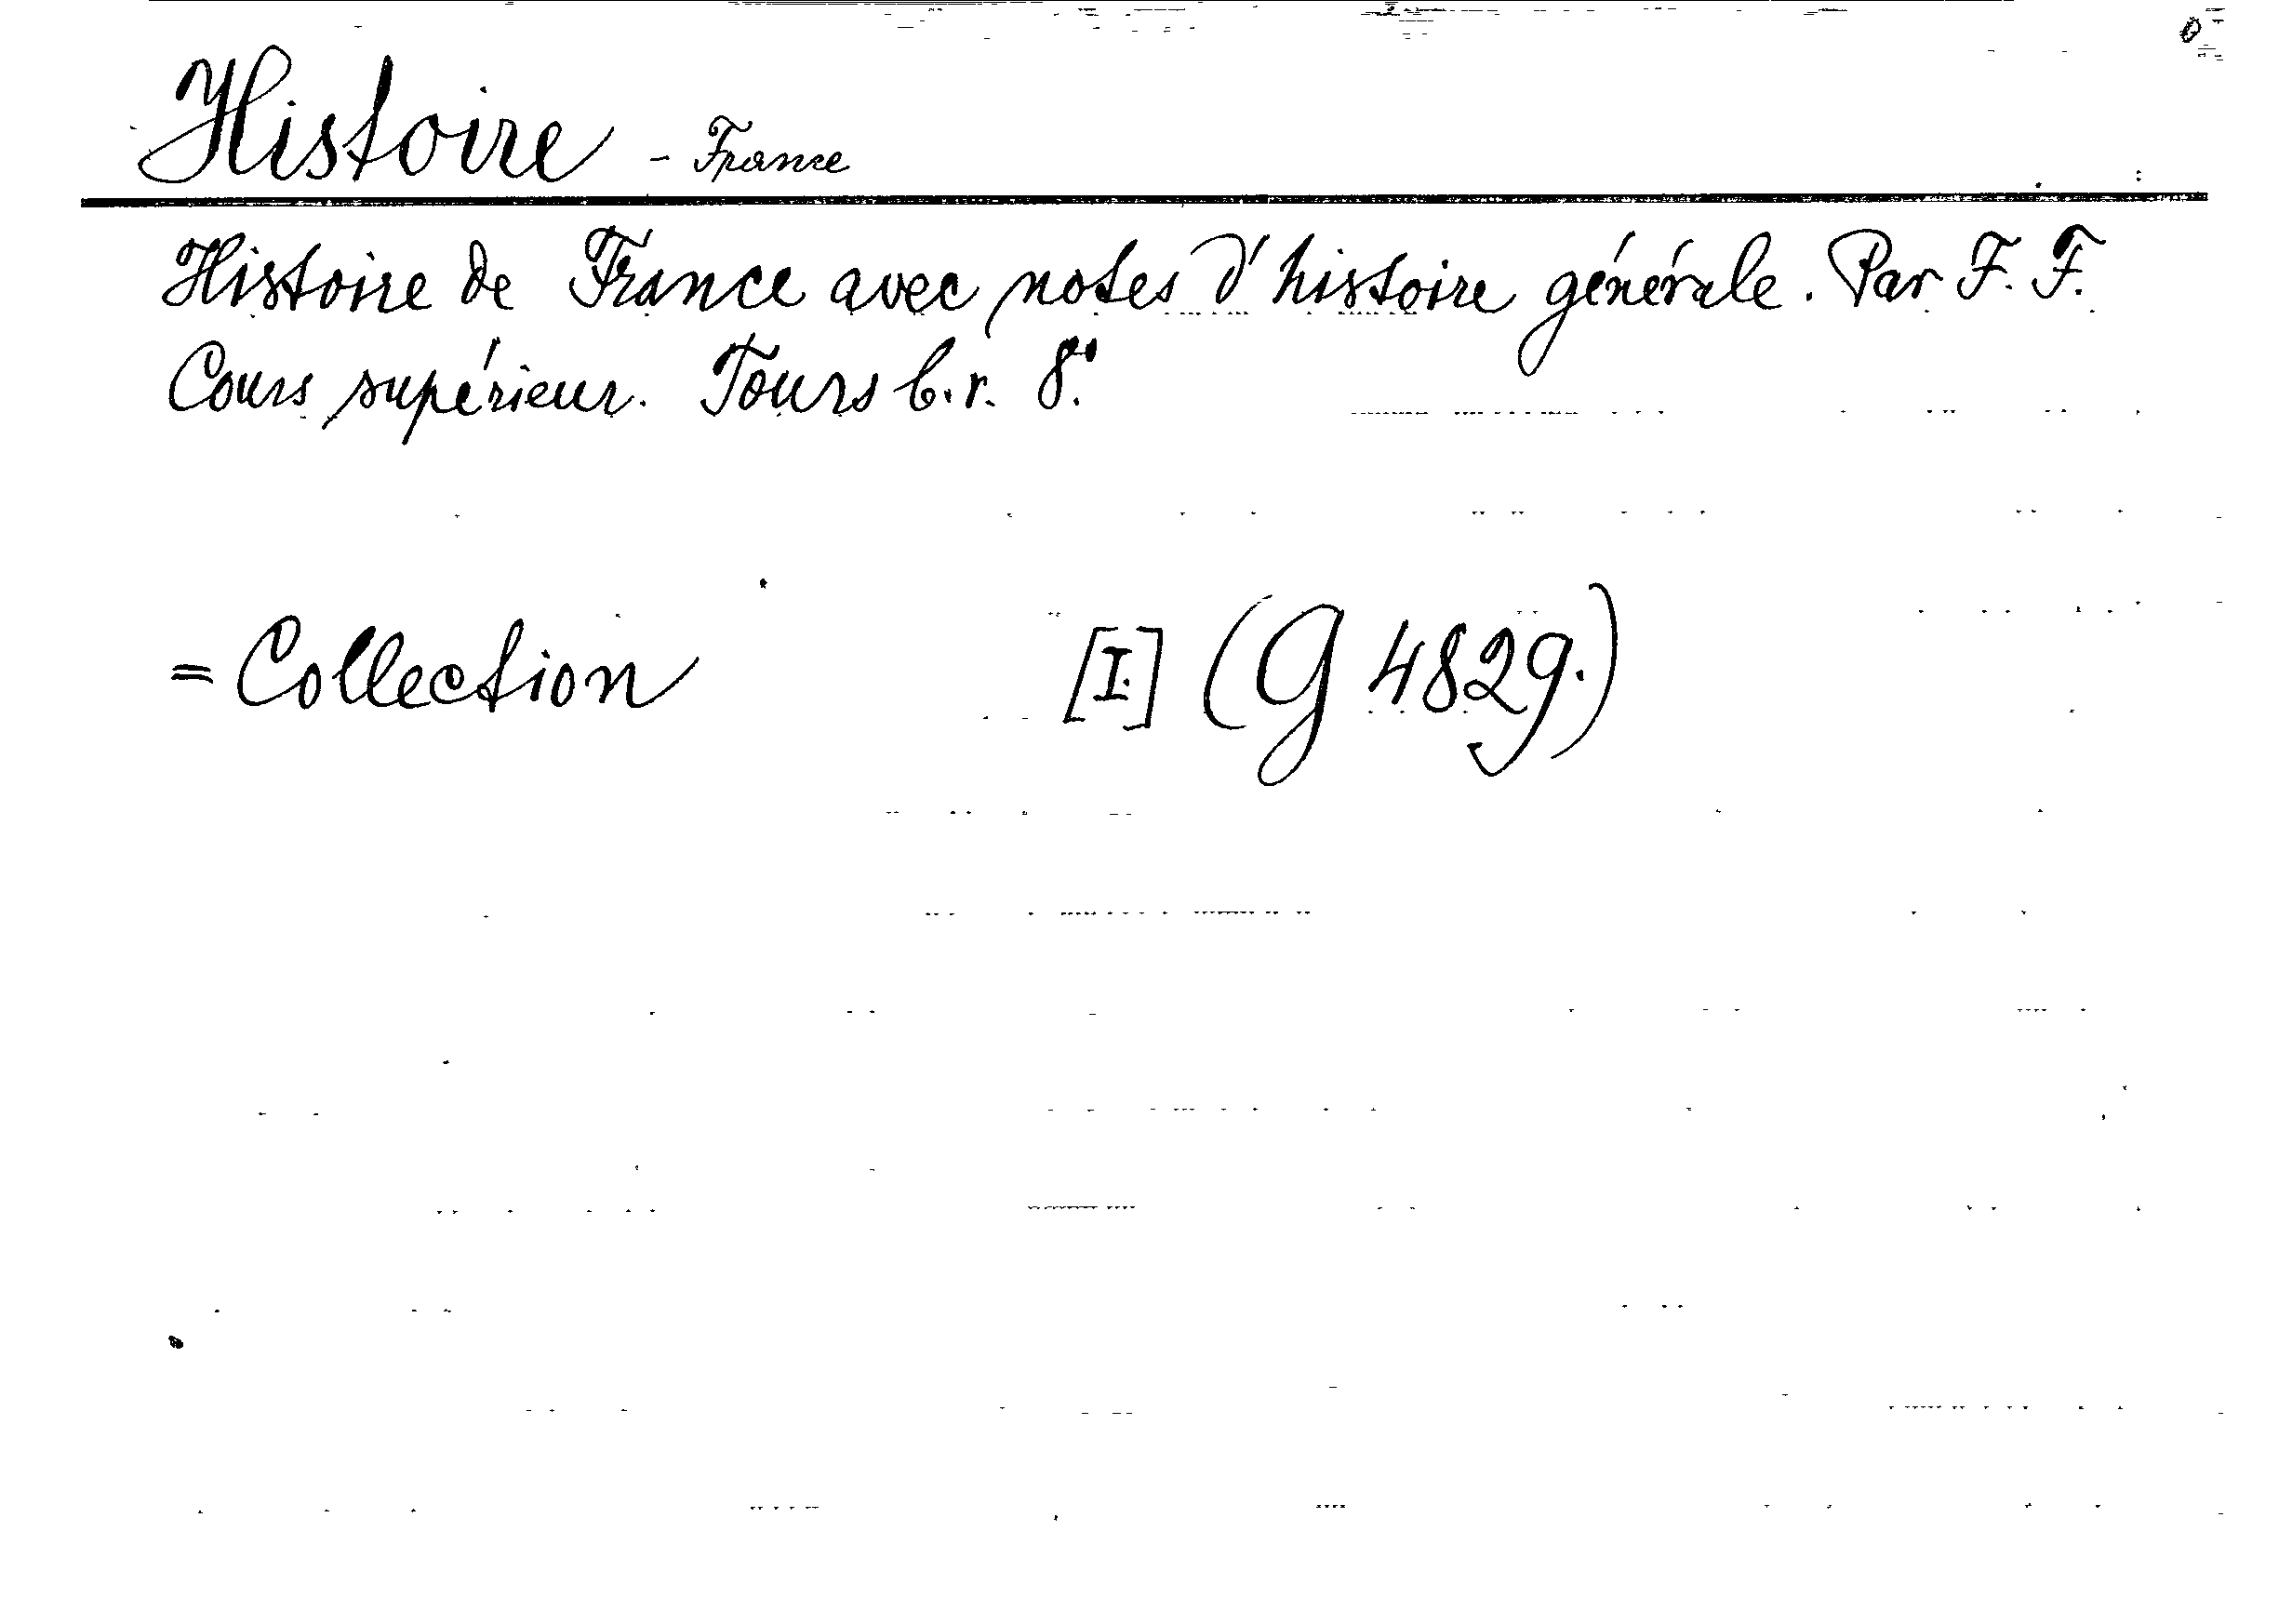 Histoire - France
Histoire de France avec notes d'histoire générale. Par F. F.
Cours supérieur. Tours b.r. 8º.
= Collection [I.] (G 4829.)